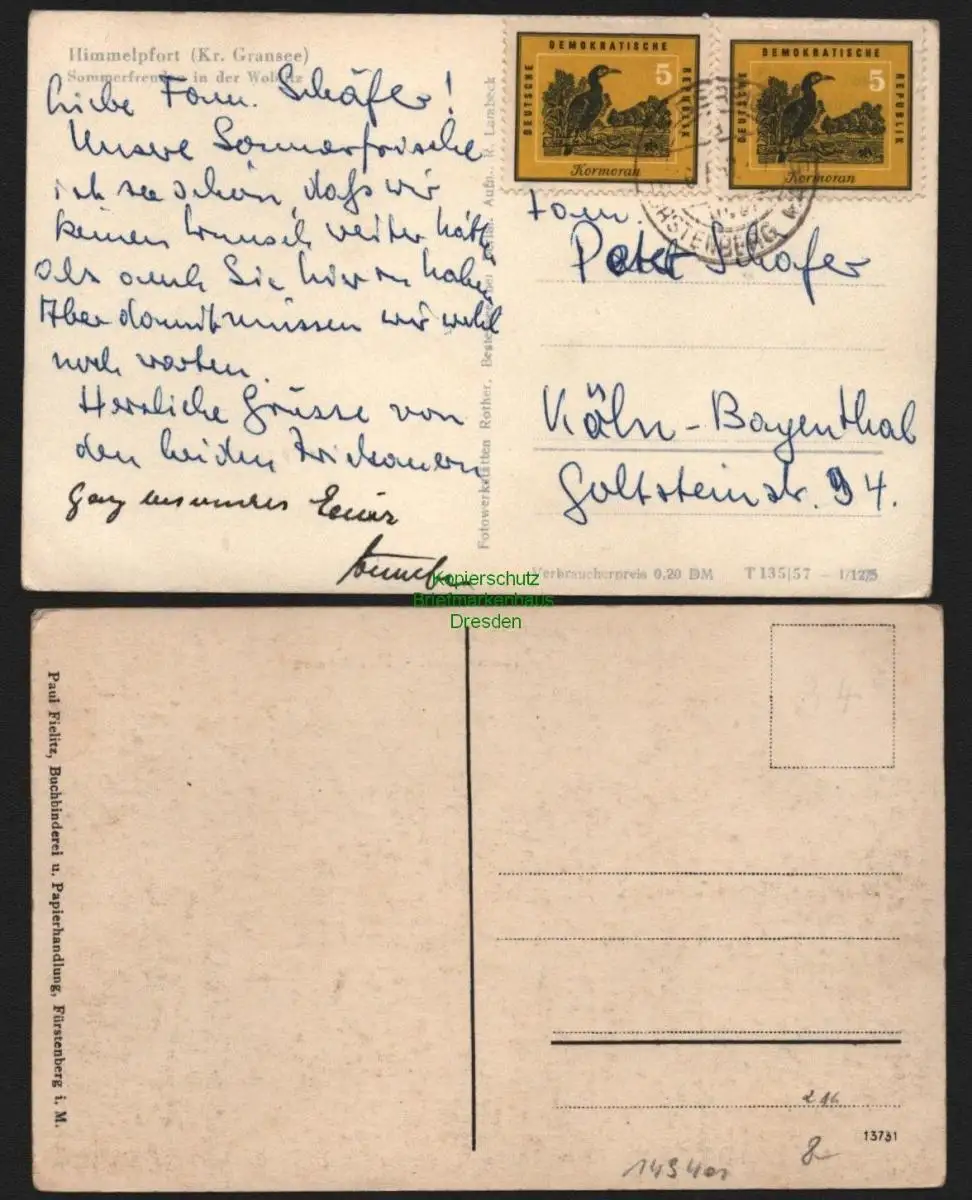 Himmelpfort (Kr. Gransee)
Sommerfreuden in der Woblitz
Liebe Fam. Schäfer!
Unsere Sommerfrische
ist so schön, daß wir
keinen Wunsch weiter hätten
als auch Sie hier zu haben.
Aber damit müssen wir wohl
noch warten.
Herzliche Grüsse von
den beiden
Ganz besonders
DEUTSCHE DEMOKRATISCHE REPUBLIK
5
Kormoran
DEUTSCHE DEMOKRATISCHE REPUBLIK
5
Kormoran
FÜRSTENBERG
Fam.
Peter Schäfer
Köln-Bayenthal
Goltsteinstr. 94.
Verbraucherpreis 0,20 DM T 135|57 — 1/12/5
Kopierschutz
Briefmarkenhaus
Dresden
Paul Fielitz, Buchbinderei u. Papierhandlung, Fürstenberg i. M.
34
13731